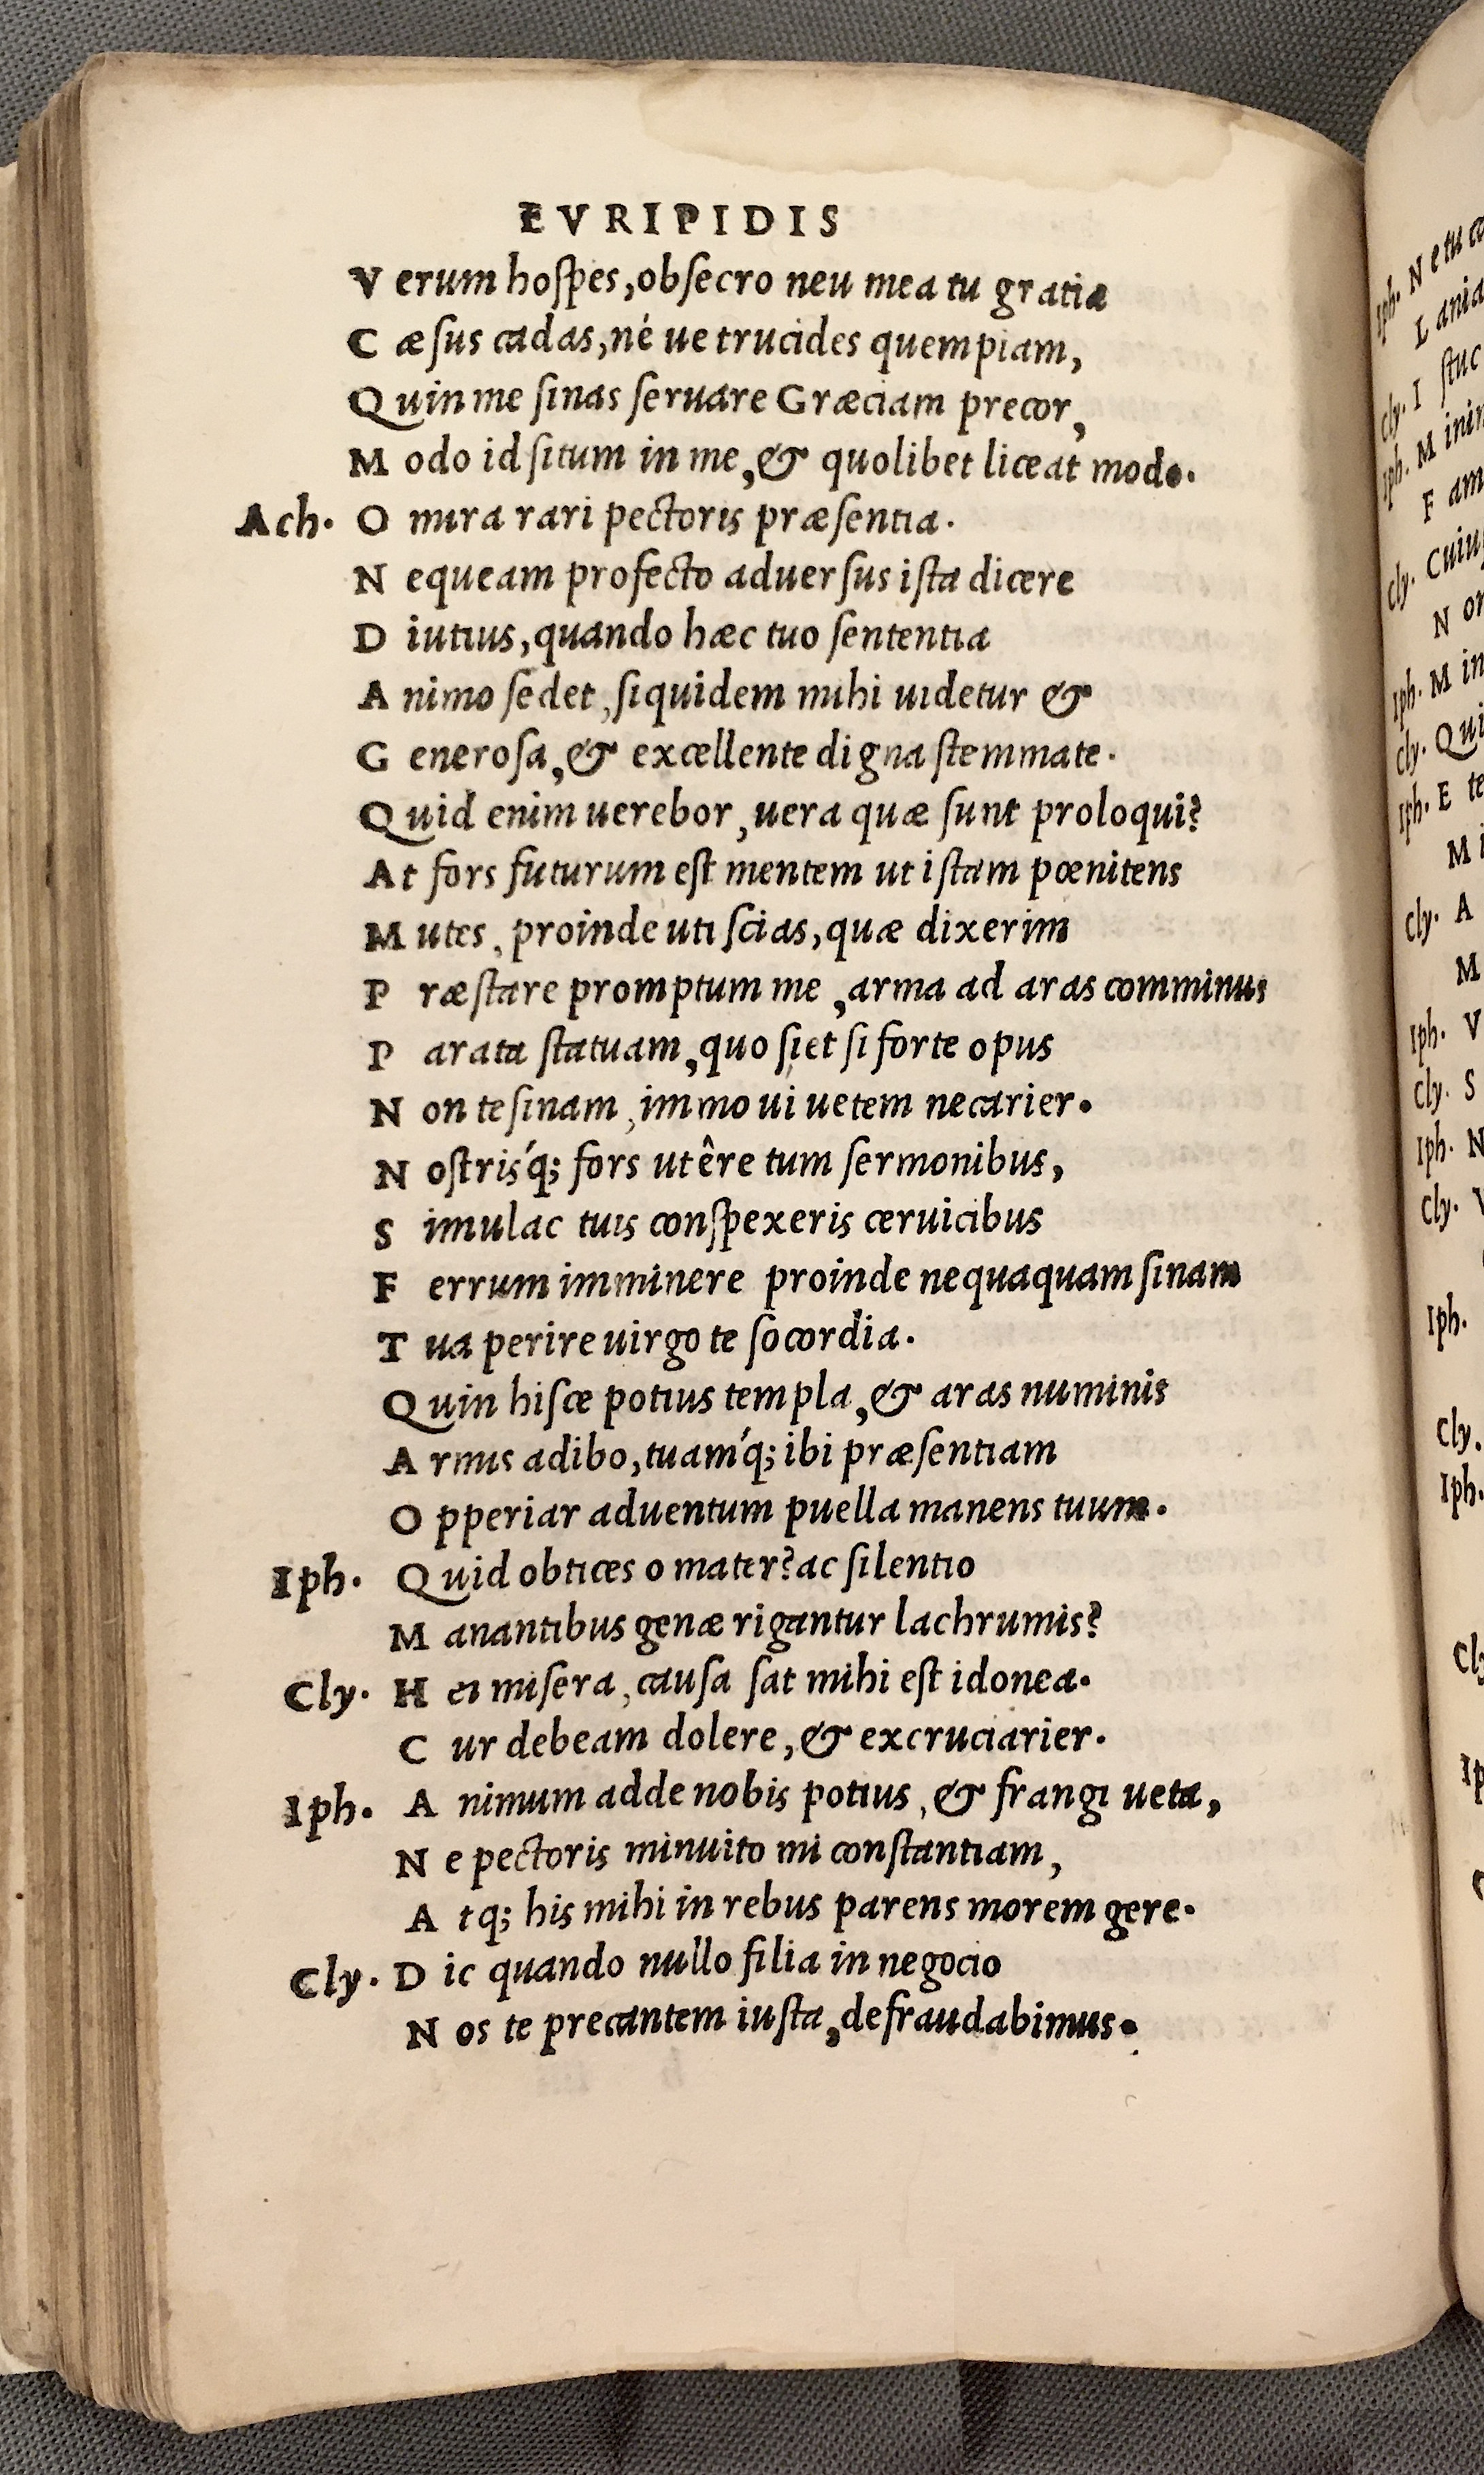 EVRIPIDIS
Verum hoſpes, obſecro neu mea tu gratia
Cæſus cadas, né ue trucides quempiam,
Quin me ſinas ſeruare Græciam precor,
Modo id ſitum in me, & quolibet liceat modo.
Ach. O mira rari pectoris præſentia.
Nequeam profecto aduerſus iſta dicere
Diutius, quando hæc tuo ſententia
Animo ſedet, ſiquidem mihi uidetur &
Generoſa, & excellente digna ſtemmate.
Quid enim uerebor, uera quæ ſunt proloqui?
At fors futurum eſt mentem ut iſtam pœnitens
Mutes, proinde uti ſcias, quæ dixerim
Præſtare promptum me, arma ad aras comminus
Parata ſtatuam, quo ſiet ſi forte opus
Non te ſinam, immo ui uetem necarier.
Noſtris'q; fors utêre tum ſermonibus,
Simulac tuis conſpexeris ceruicibus
Ferrum imminere proinde nequaquam ſinam
Tua perire uirgo te ſocordia.
Quin hiſce potius templa, & aras numinis
Armis adibo, tuam'q; ibi præſentiam
Opperiar aduentum puella manens tuum.
Iph. Quid obtices o mater? ac ſilentio
Manantibus genæ rigantur lachrumis?
Cly. Hei miſera, cauſa ſat mihi eſt idonea.
Cur debeam dolere, & excruciarier.
Iph. Animum adde nobis potius, & frangi ueta,
Ne pectoris minuito mi conſtantiam,
Atq; his mihi in rebus parens morem gere.
Cly. Dic quando nullo filia in negocio
Nos te precantem iuſta, defraudabimus.
Iph. Ne tu
Lania
Cly. Iſtuc
Iph. Mini
Fam
Cly. Cuiu
Non
Iph. Min
Cly. Qui
Iph. E te
Mi
Cly. A
M
Iph. V
Cly. S
Iph. N
Cly. V
Iph.
Cly.
Iph.